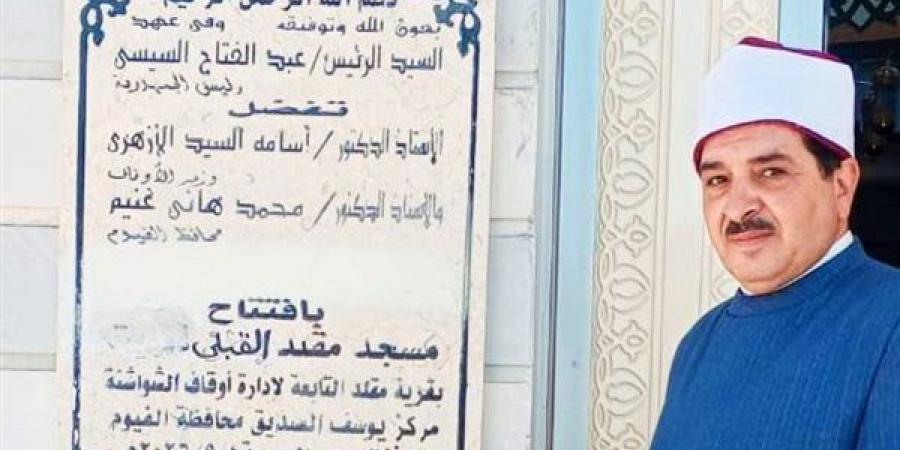 بسم الله الرحمن الرحيم
بعون الله وتوفيقه وفى عهد
السيد الرئيس/ عبد الفتاح السيسى
رئيس الجمهورية
تفضل
الأستاذ الدكتور/ أسامه السيد الأزهرى
وزير الأوقاف
والأستاذ الدكتور/ محمد هانى غنيم
محافظ الفيوم
بافتتاح
مسجد مقلد القبلى
بقرية مقلد التابعة لادارة أوقاف الشواشنة
مركز يوسف الصديق محافظة الفيوم